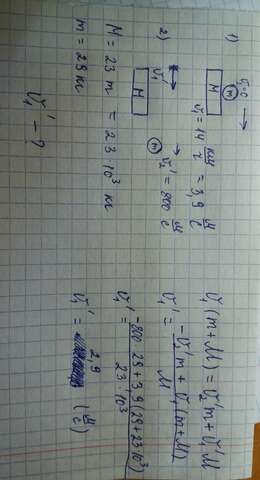 1)
M
m
v₁ = 14 км/г = 3,9 м/с
2)
v₁'
M
m
v₂' = 800 м/с
M = 23 т = 23 · 10³ кг
m = 29 кг
v₁' - ?
v₁(m+M) = v₂'m + v₁'M
v₁' = (-v₂'m + v₁(m+M))/M
v₁' = (-800 · 29 + 3,9(29 + 23·10³))/(23 · 10³)
v₁' = 2,9 (м/с)